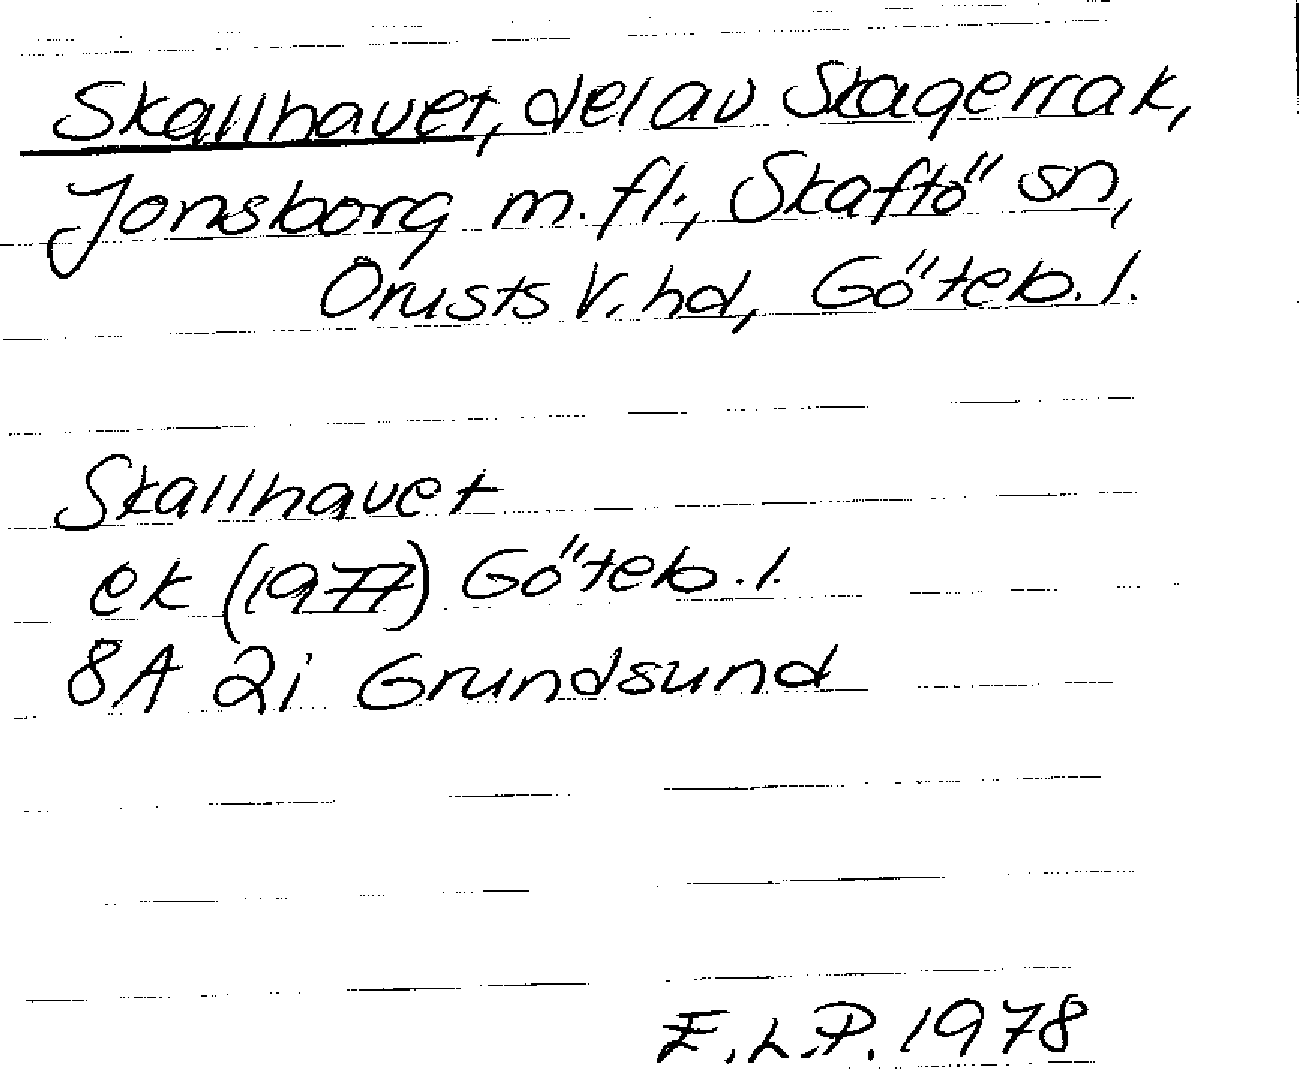 Skallhavet, del av Skagerrak,
Jonsborg m.fl., Skaftö sn,
Orusts V. hd, Göteb. l.
Skallhavet
ek (1977) Göteb. l.
8A 2i Grundsund
E.L.P. 1978